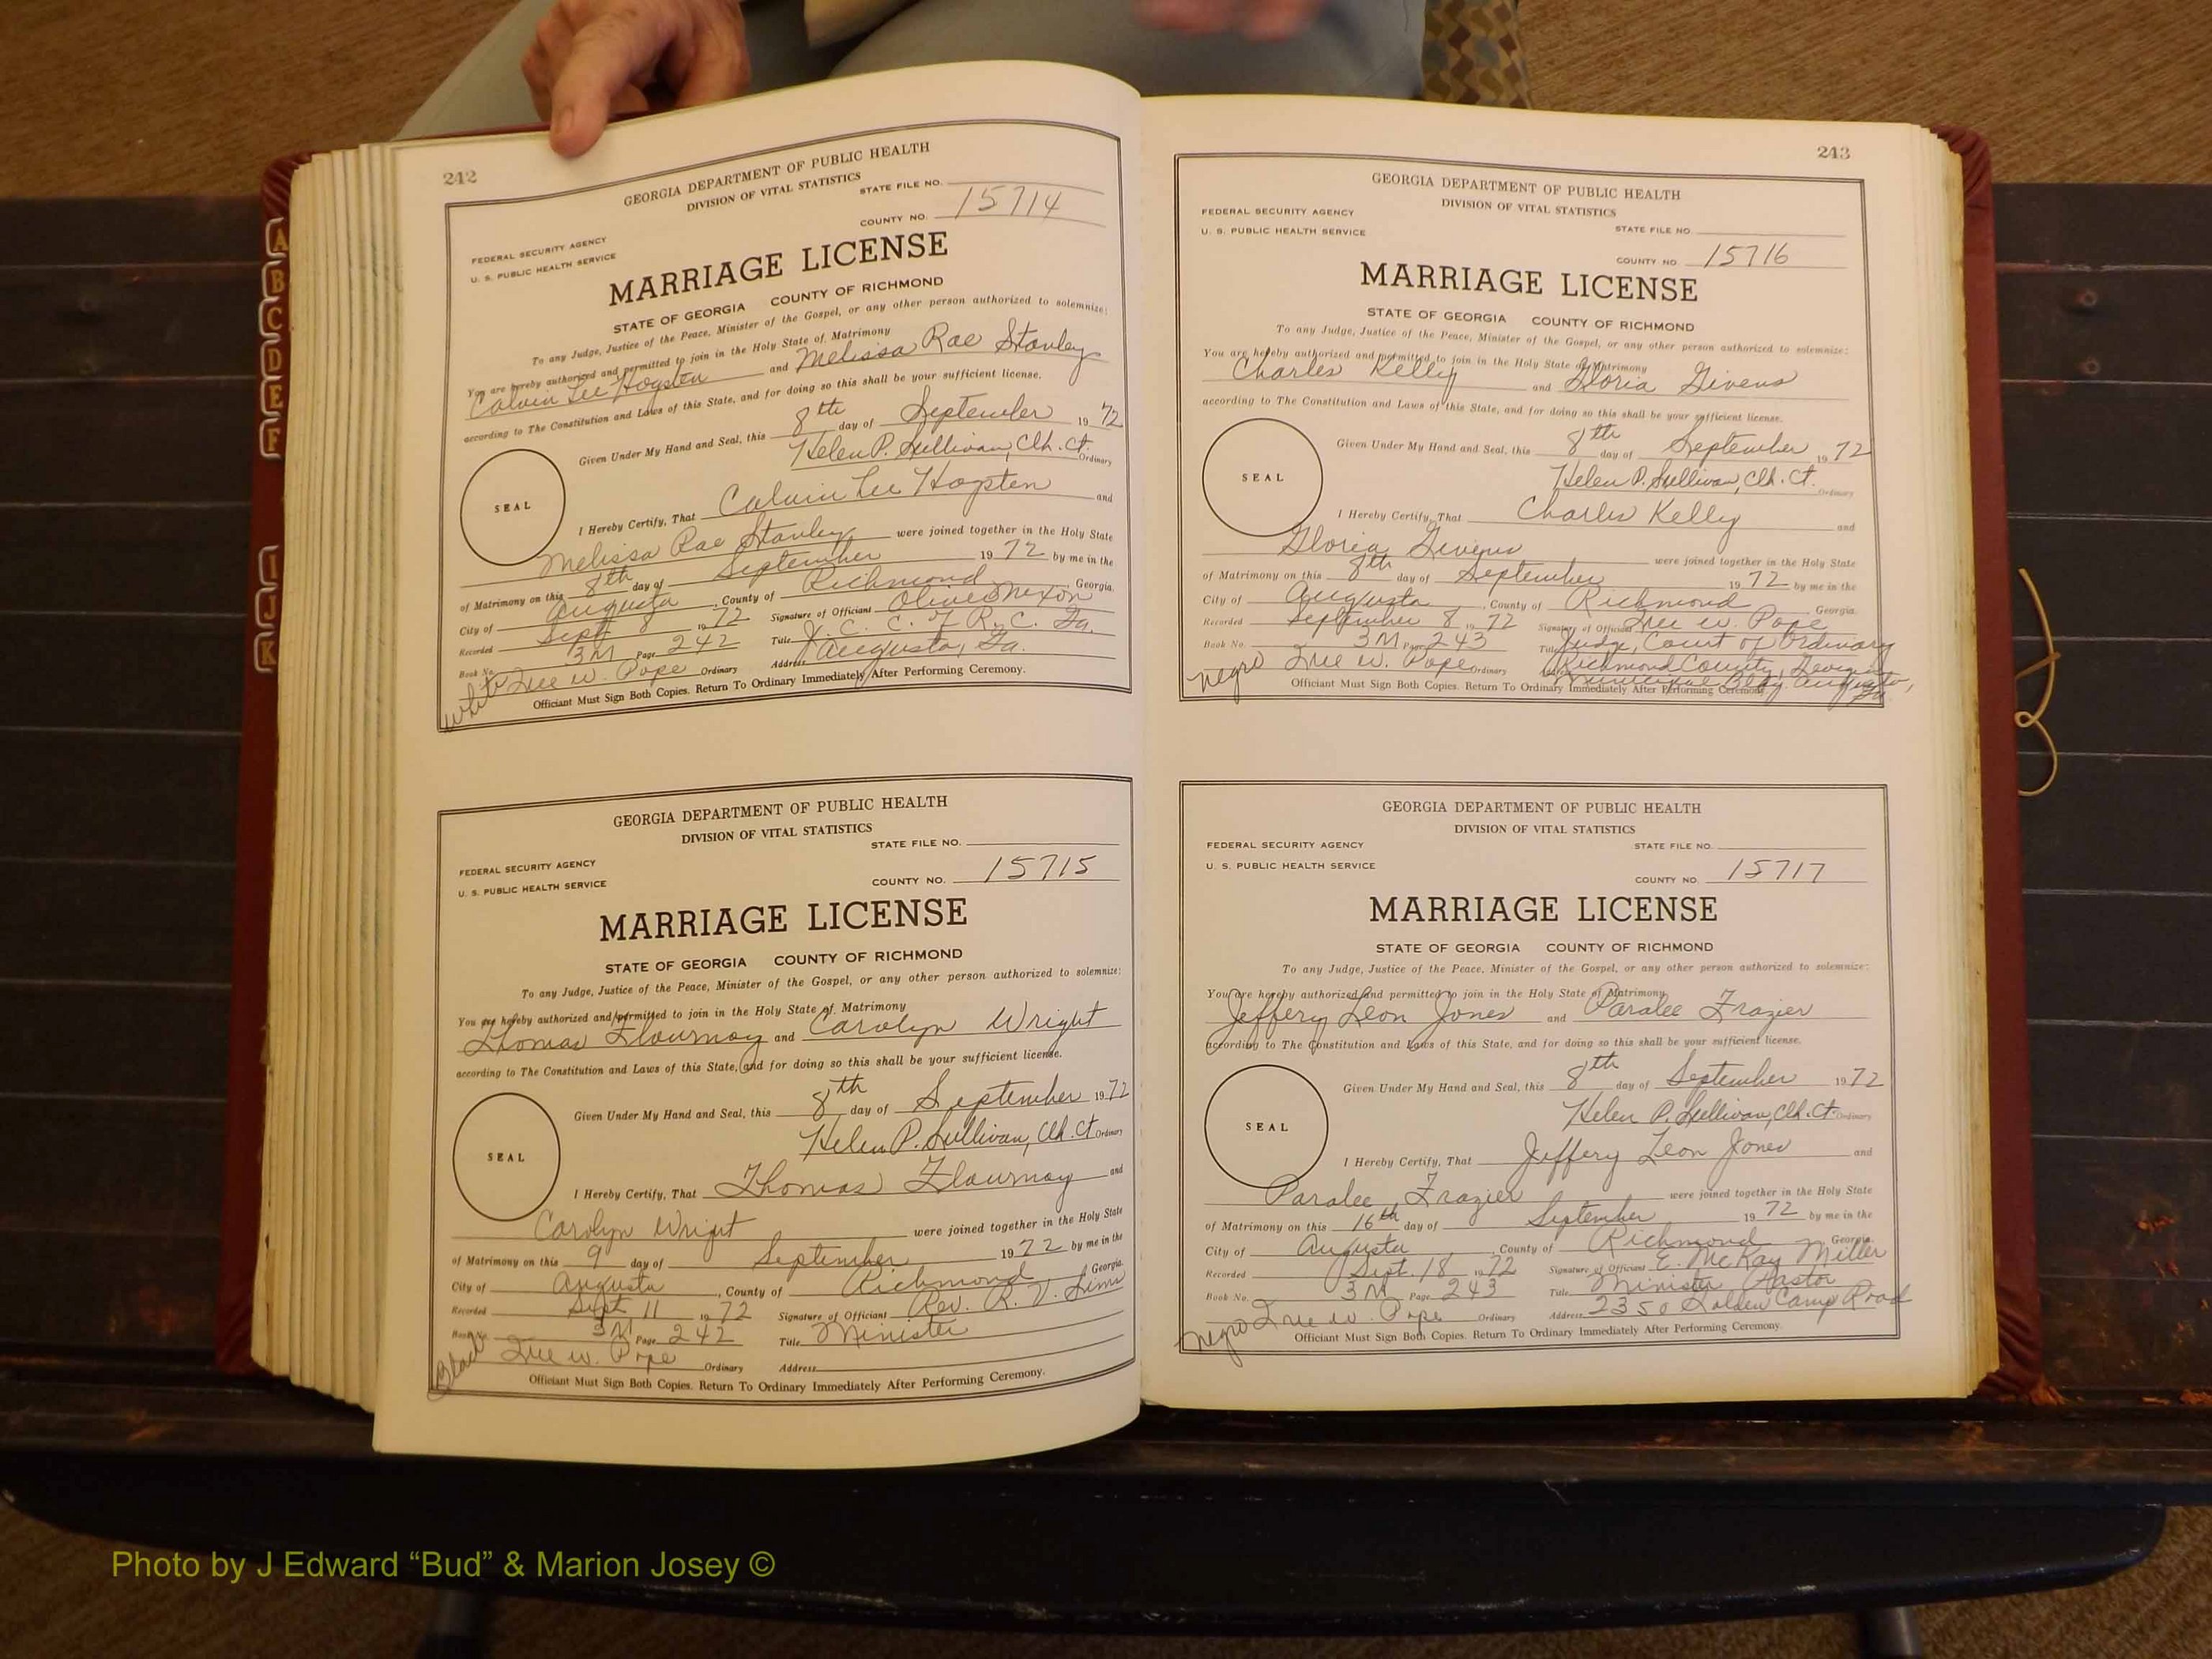 A
B
C
D
E
F
I
J
K
242
GEORGIA DEPARTMENT OF PUBLIC HEALTH
DIVISION OF VITAL STATISTICS
STATE FILE NO.
COUNTY NO. 15714
FEDERAL SECURITY AGENCY
U. S. PUBLIC HEALTH SERVICE
MARRIAGE LICENSE
STATE OF GEORGIA COUNTY OF RICHMOND
To any Judge, Justice of the Peace, Minister of the Gospel, or any other person authorized to solemnize:
You are hereby authorized and permitted to join in the Holy State of Matrimony
Calvin Lee Hogsten and Melissa Rae Stanley
according to The Constitution and Laws of this State, and for doing so this shall be your sufficient license.
Given Under My Hand and Seal, this 8th day of September 1972
Helen P. Sullivan, Clk. Ct. Ordinary
SEAL
I Hereby Certify, That Calvin Lee Hogsten and
Melissa Rae Stanley were joined together in the Holy State
of Matrimony on this 8th day of September 1972 by me in the
City of Augusta, County of Richmond, Georgia.
Recorded Sept 8 1972 Signature of Officiant Olive Nixon
Book No. 3M Page 242 Title J. C. C. of R. C. Ga.
True W. Pope Ordinary Address Augusta, Ga.
White
Officiant Must Sign Both Copies. Return To Ordinary Immediately After Performing Ceremony.
GEORGIA DEPARTMENT OF PUBLIC HEALTH
DIVISION OF VITAL STATISTICS
STATE FILE NO.
FEDERAL SECURITY AGENCY
U. S. PUBLIC HEALTH SERVICE
COUNTY NO. 15715
MARRIAGE LICENSE
STATE OF GEORGIA COUNTY OF RICHMOND
To any Judge, Justice of the Peace, Minister of the Gospel, or any other person authorized to solemnize:
You are hereby authorized and permitted to join in the Holy State of Matrimony
Thomas Flournoy and Carolyn Wright
according to The Constitution and Laws of this State, and for doing so this shall be your sufficient license.
Given Under My Hand and Seal, this 8th day of September 1972
Helen P. Sullivan, Clk. Ct. Ordinary
SEAL
I Hereby Certify, That Thomas Flournoy and
Carolyn Wright were joined together in the Holy State
of Matrimony on this 9 day of September 1972 by me in the
City of Augusta, County of Richmond, Georgia.
Recorded Sept 11 1972 Signature of Officiant Rev. R. V. Sims
Book No. 3M Page 242 Title Minister
True W. Pope Ordinary Address
Black
Officiant Must Sign Both Copies. Return To Ordinary Immediately After Performing Ceremony.
243
GEORGIA DEPARTMENT OF PUBLIC HEALTH
DIVISION OF VITAL STATISTICS
FEDERAL SECURITY AGENCY
U. S. PUBLIC HEALTH SERVICE
STATE FILE NO.
COUNTY NO 15716
MARRIAGE LICENSE
STATE OF GEORGIA COUNTY OF RICHMOND
To any Judge, Justice of the Peace, Minister of the Gospel, or any other person authorized to solemnize:
You are hereby authorized and permitted to join in the Holy State of Matrimony
Charles Kelly and Gloria Givens
according to The Constitution and Laws of this State, and for doing so this shall be your sufficient license.
Given Under My Hand and Seal, this 8th day of September 1972
Helen P. Sullivan, Clk. Ct. Ordinary
SEAL
I Hereby Certify, That Charles Kelly and
Gloria Givens were joined together in the Holy State
of Matrimony on this 8th day of September 1972 by me in the
City of Augusta, County of Richmond, Georgia.
Recorded September 8 1972 Signature of Officiant True W. Pope
Book No. 3M Page 243 Title Judge, Court of Ordinary
negro True W. Pope Ordinary Address Richmond County, Georgia
Municipal Bldg. Augusta, Ga
Officiant Must Sign Both Copies. Return To Ordinary Immediately After Performing Ceremony.
GEORGIA DEPARTMENT OF PUBLIC HEALTH
DIVISION OF VITAL STATISTICS
FEDERAL SECURITY AGENCY
U. S. PUBLIC HEALTH SERVICE
STATE FILE NO.
COUNTY NO. 15717
MARRIAGE LICENSE
STATE OF GEORGIA COUNTY OF RICHMOND
To any Judge, Justice of the Peace, Minister of the Gospel, or any other person authorized to solemnize:
You are hereby authorized and permitted to join in the Holy State of Matrimony
Jeffery Leon Jones and Paralee Frazier
according to The Constitution and Laws of this State, and for doing so this shall be your sufficient license.
Given Under My Hand and Seal, this 8th day of September 1972
Helen P. Sullivan, Clk. Ct. Ordinary
SEAL
I Hereby Certify, That Jeffery Leon Jones and
Paralee Frazier were joined together in the Holy State
of Matrimony on this 16th day of September 1972 by me in the
City of Augusta, County of Richmond, Georgia.
Recorded Sept. 18 1972 Signature of Officiant E. McKay Miller
Book No. 3M Page 243 Title Minister Pastor
negro True W. Pope Ordinary Address 2350 Golden Camp Road
Officiant Must Sign Both Copies. Return To Ordinary Immediately After Performing Ceremony.
Photo by J Edward “Bud” & Marion Josey ©